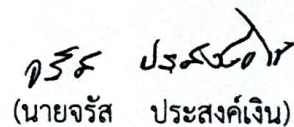 จรัส ประสงค์เงิน
(นายจรัส ประสงค์เงิน)